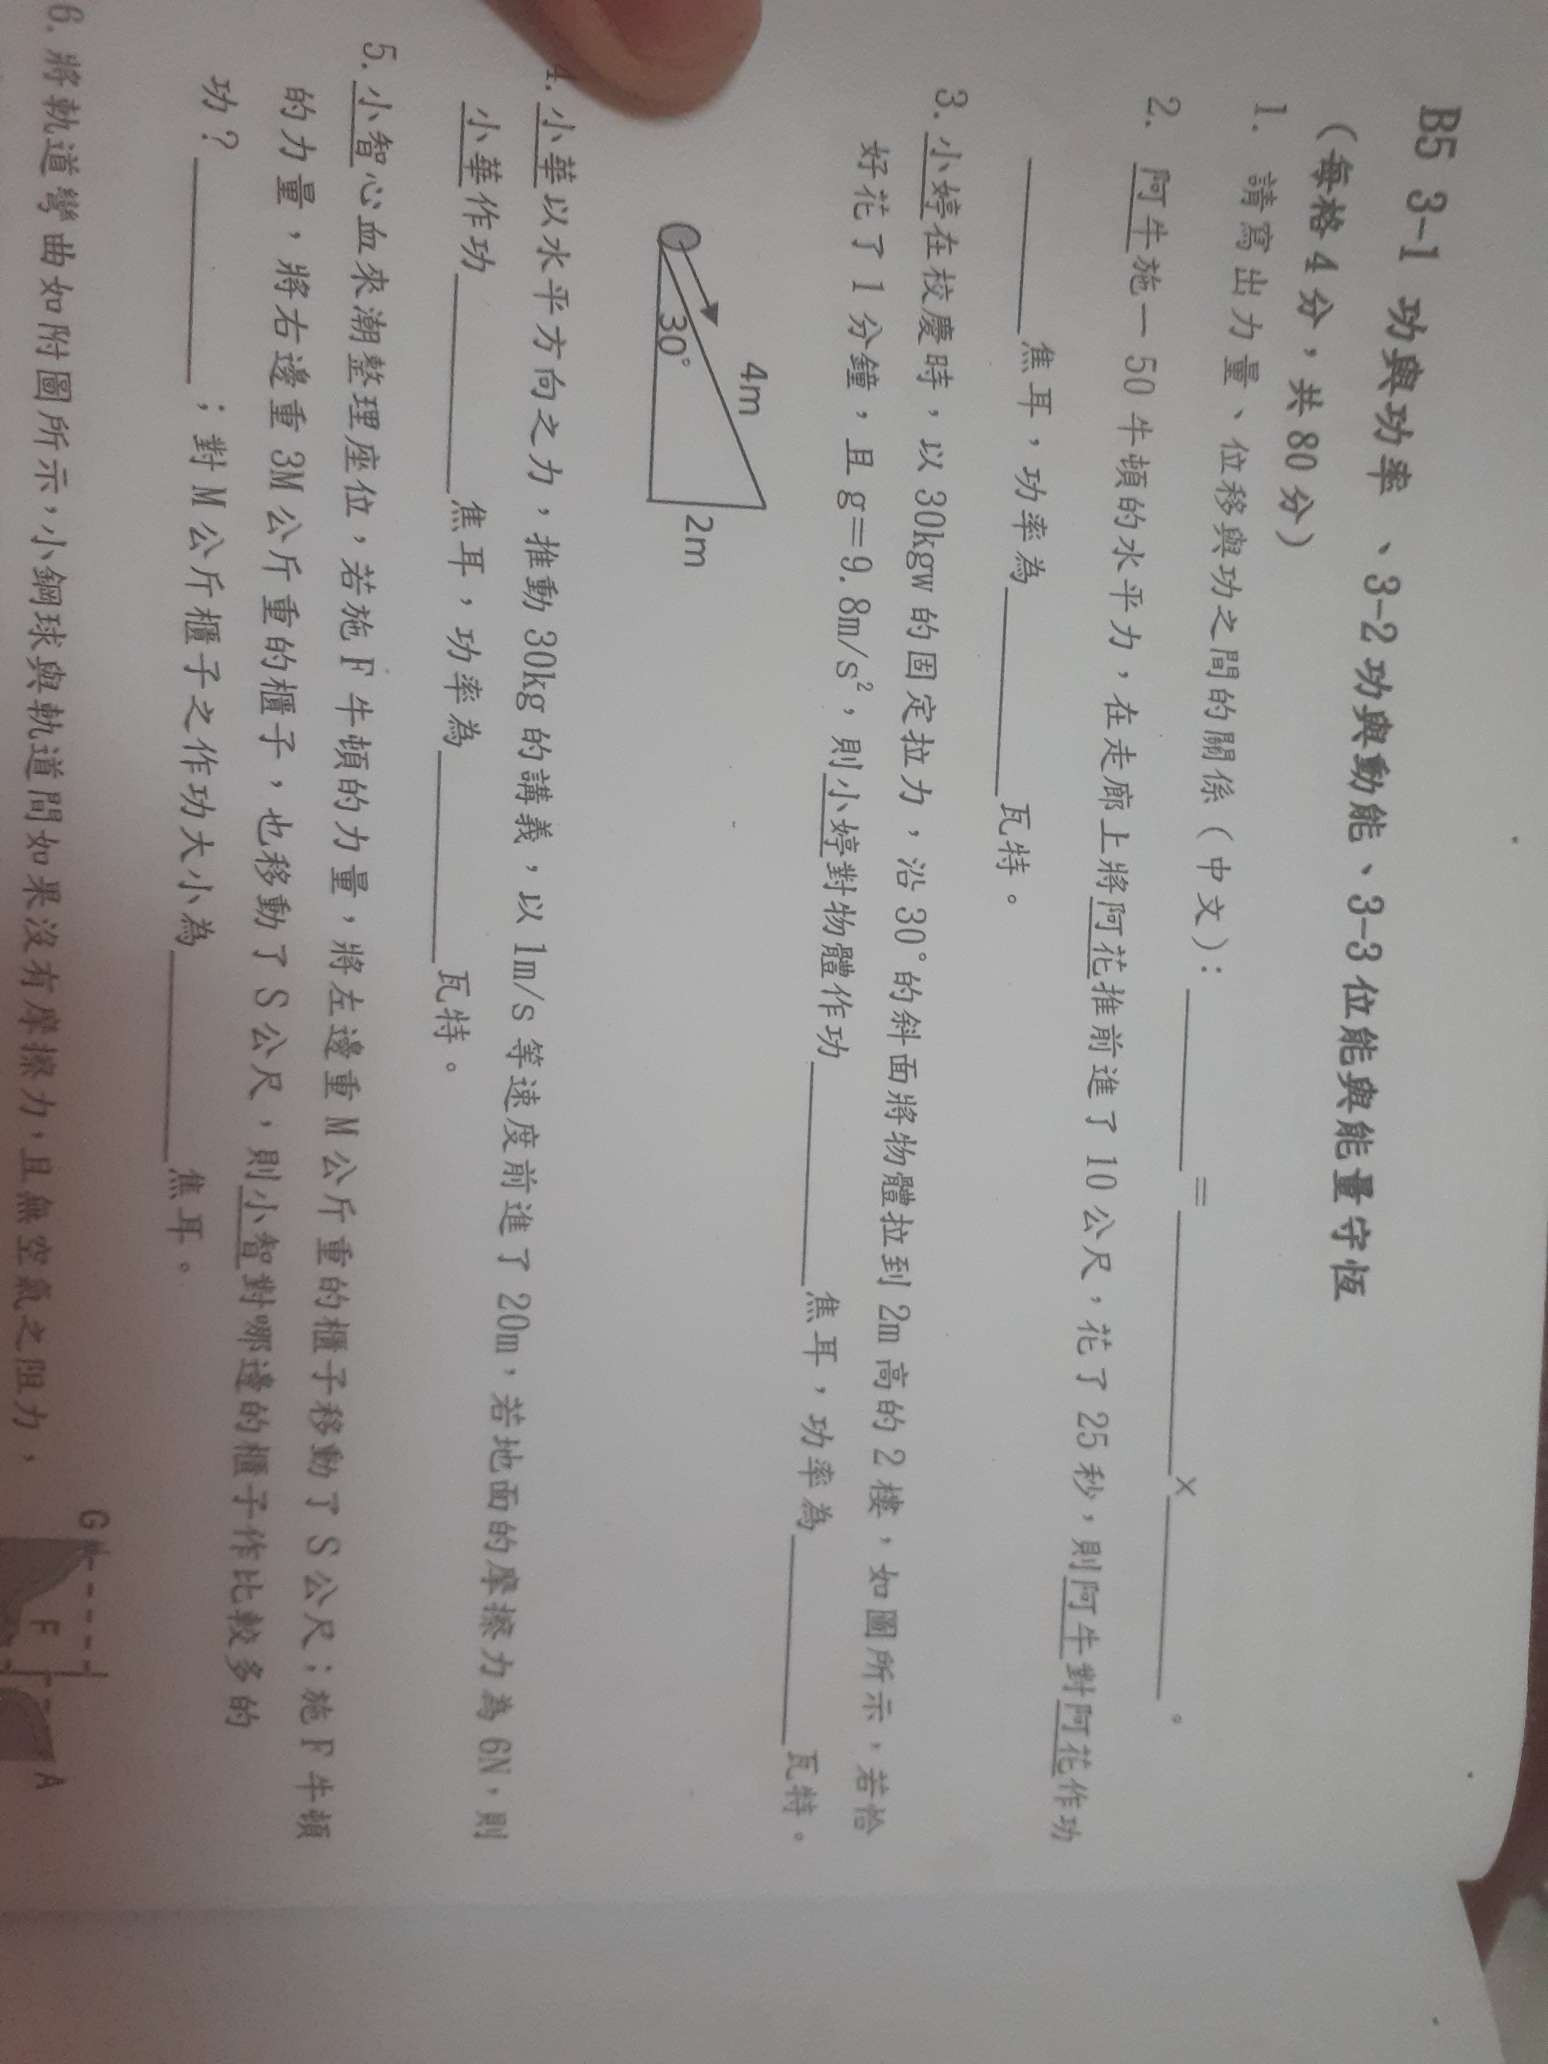 B5 3-1 功與功率、3-2功與動能、3-3位能與能量守恆
(每格4分,共80分)
1. 請寫出力量、位移與功之間的關係(中文):________=____________×__________。
2. 阿牛施一50牛頓的水平力,在走廊上將阿花推前進了10公尺,花了25秒,則阿牛對阿花作功
________焦耳,功率為__________瓦特。
3.小婷在校慶時,以30kgw的固定拉力,沿30°的斜面將物體拉到2m高的2樓,如圖所示,若恰
好花了1分鐘,且g=9.8m/s²,則小婷對物體作功__________焦耳,功率為__________瓦特。
4m
30°
2m
4.小華以水平方向之力,推動30kg的講義,以1m/s等速度前進了20m,若地面的摩擦力為6N,則
小華作功__________焦耳,功率為__________瓦特。
5.小智心血來潮整理座位,若施F牛頓的力量,將左邊重M公斤重的櫃子移動了S公尺;施F牛頓
的力量,將右邊重3M公斤重的櫃子,也移動了S公尺,則小智對哪邊的櫃子作比較多的
功?__________;對M公斤櫃子之作功大小為__________焦耳。
6.將軌道彎曲如附圖所示,小鋼球與軌道間如果沒有摩擦力,且無空氣之阻力,
G
F
A